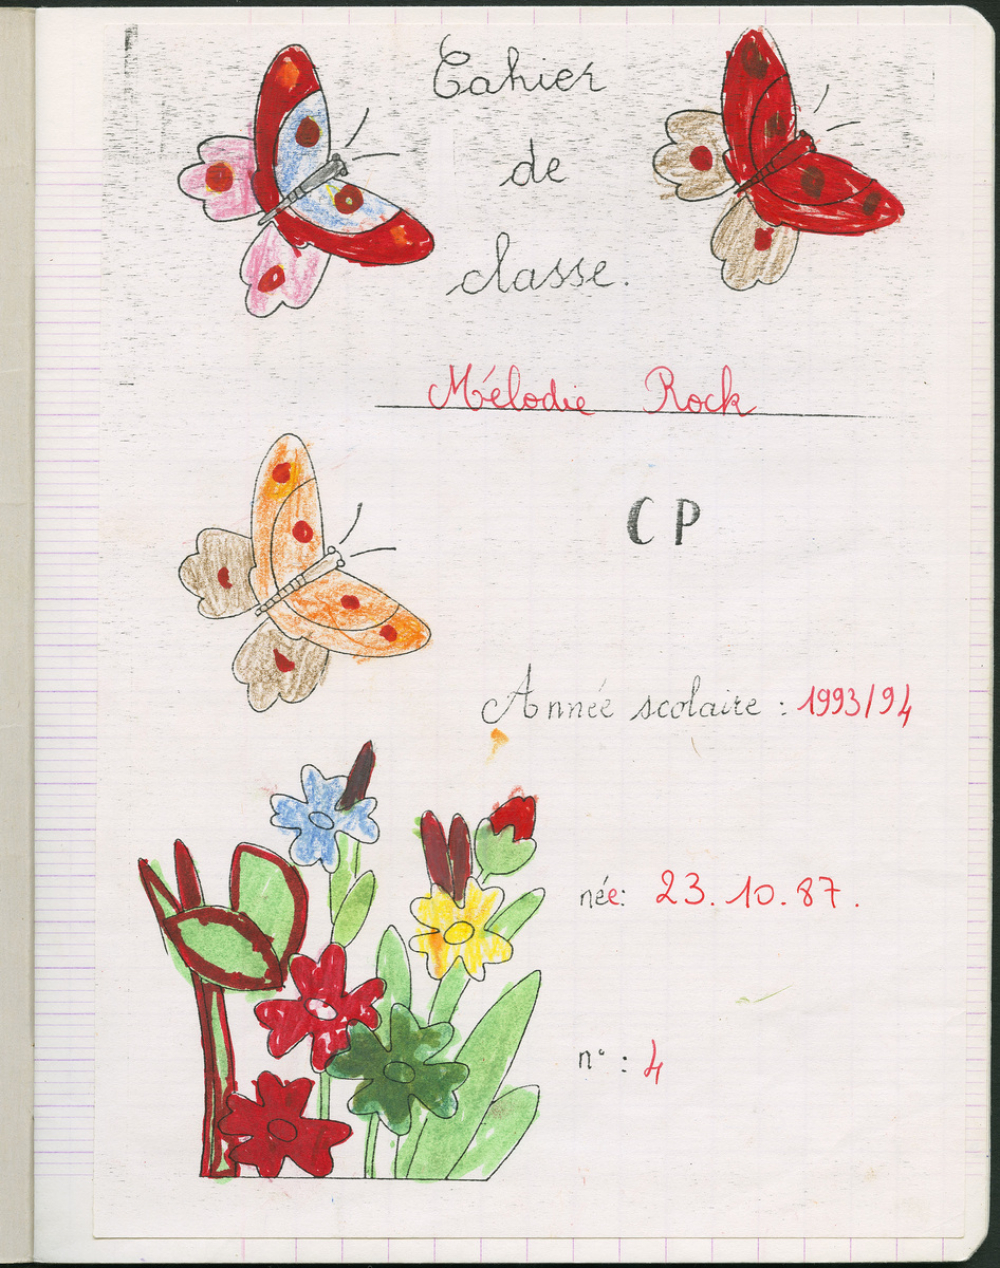 Cahier
de
classe.
Mélodie Rock
CP
Année scolaire : 1993/94
née: 23.10.87.
n° : 4